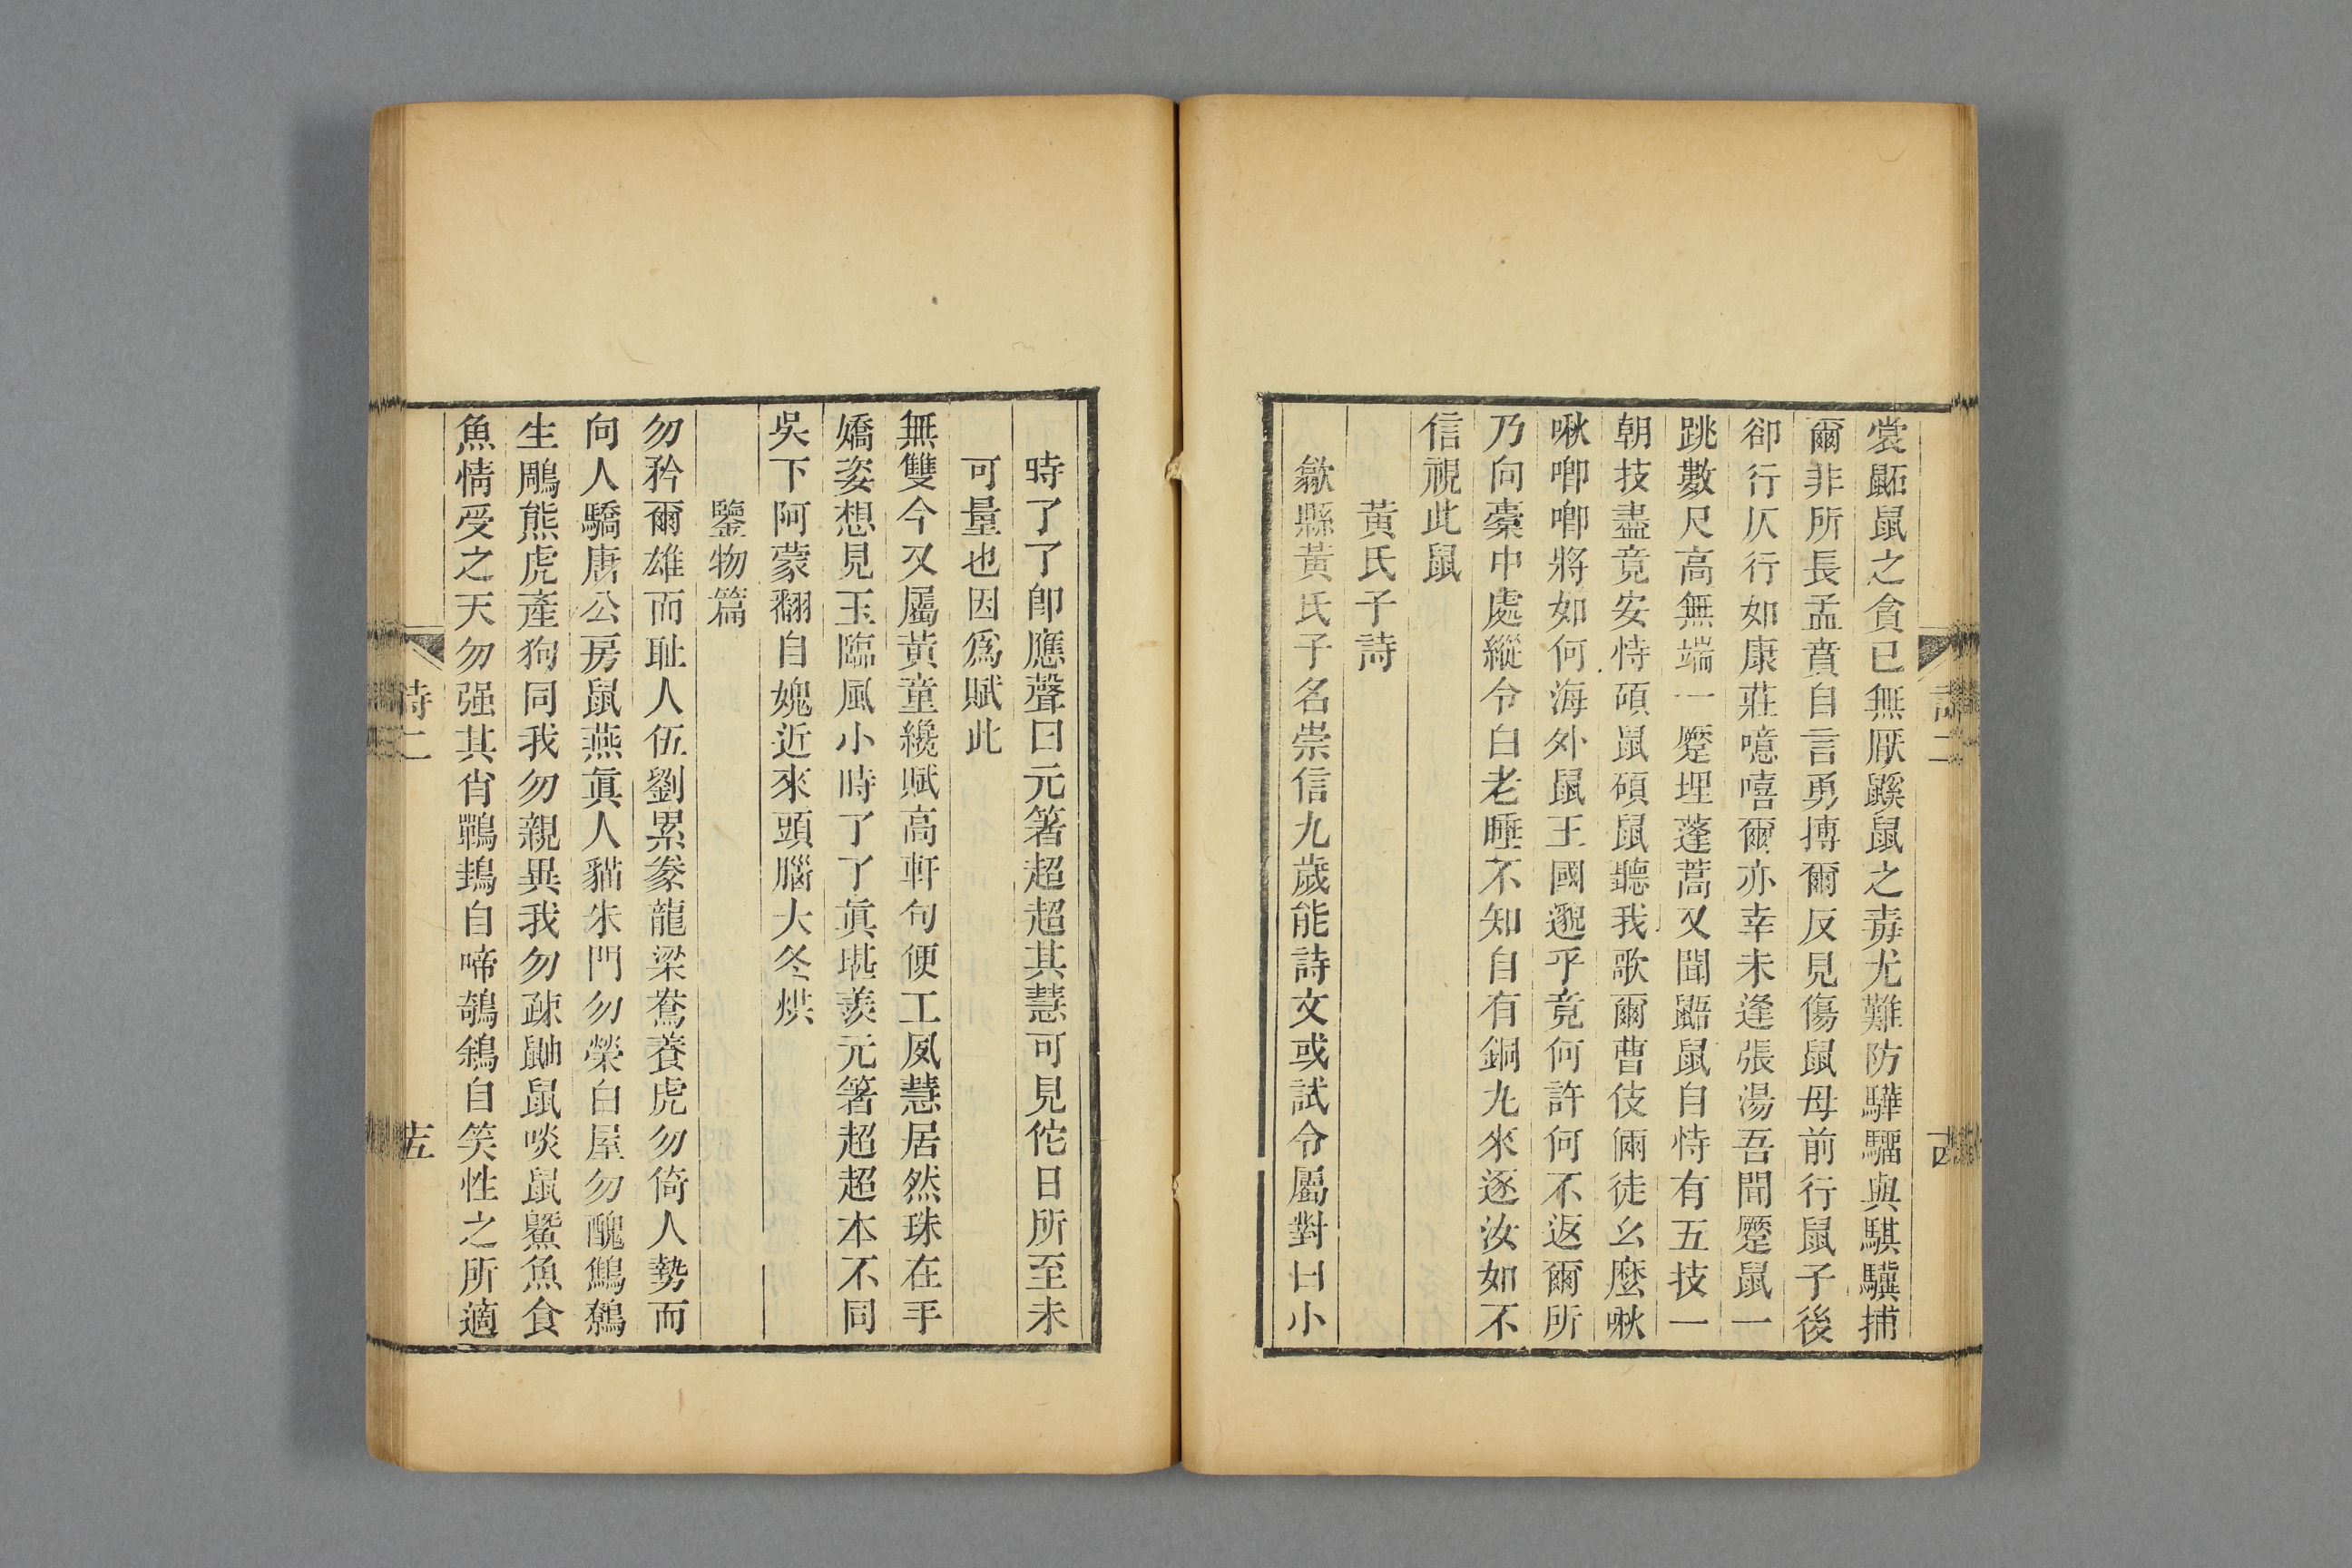 裳鼫鼠之貪已無厭鼷鼠之毒尤難防驊騮與騏驥捕
爾非所長孟賁自言勇搏爾反見傷鼠母前行鼠子後
卻行仄行如康莊噫嘻爾亦幸未逢張湯吾聞蹷鼠一
跳數尺高無端一蹷埋蓬蒿又聞鼯鼠自恃有五技一
朝技盡竟安恃碩鼠碩鼠聽我歌爾曹伎倆徒幺麼啾
啾唧唧將如何海外鼠王國邈乎竟何許何不返爾所
乃向橐中處縱令白老睡不知自有銅丸來逐汝如不
信視此鼠
黃氏子詩
歙縣黃氏子名崇信九歲能詩文或試令屬對曰小
詩二
時了了卽應聲曰元箸超超其慧可見佗日所至未
可量也因爲賦此
無雙今又屬黃童纔賦高軒句便工夙慧居然珠在手
嬌姿想見玉臨風小時了了眞堪羨元箸超超本不同
吳下阿蒙翻自媿近來頭腦大冬烘
鑒物篇
勿矜爾雄而耻人伍劉累豢龍梁鴦養虎勿倚人勢而
向人驕唐公房鼠燕眞人貓朱門勿榮白屋勿醜鷦鷯
生鵰熊虎產狗同我勿親異我勿疎鼬鼠啖鼠鱟魚食
魚情受之天勿强其肖鵜鴣自啼鵠鵨自笑性之所適
詩二
十五